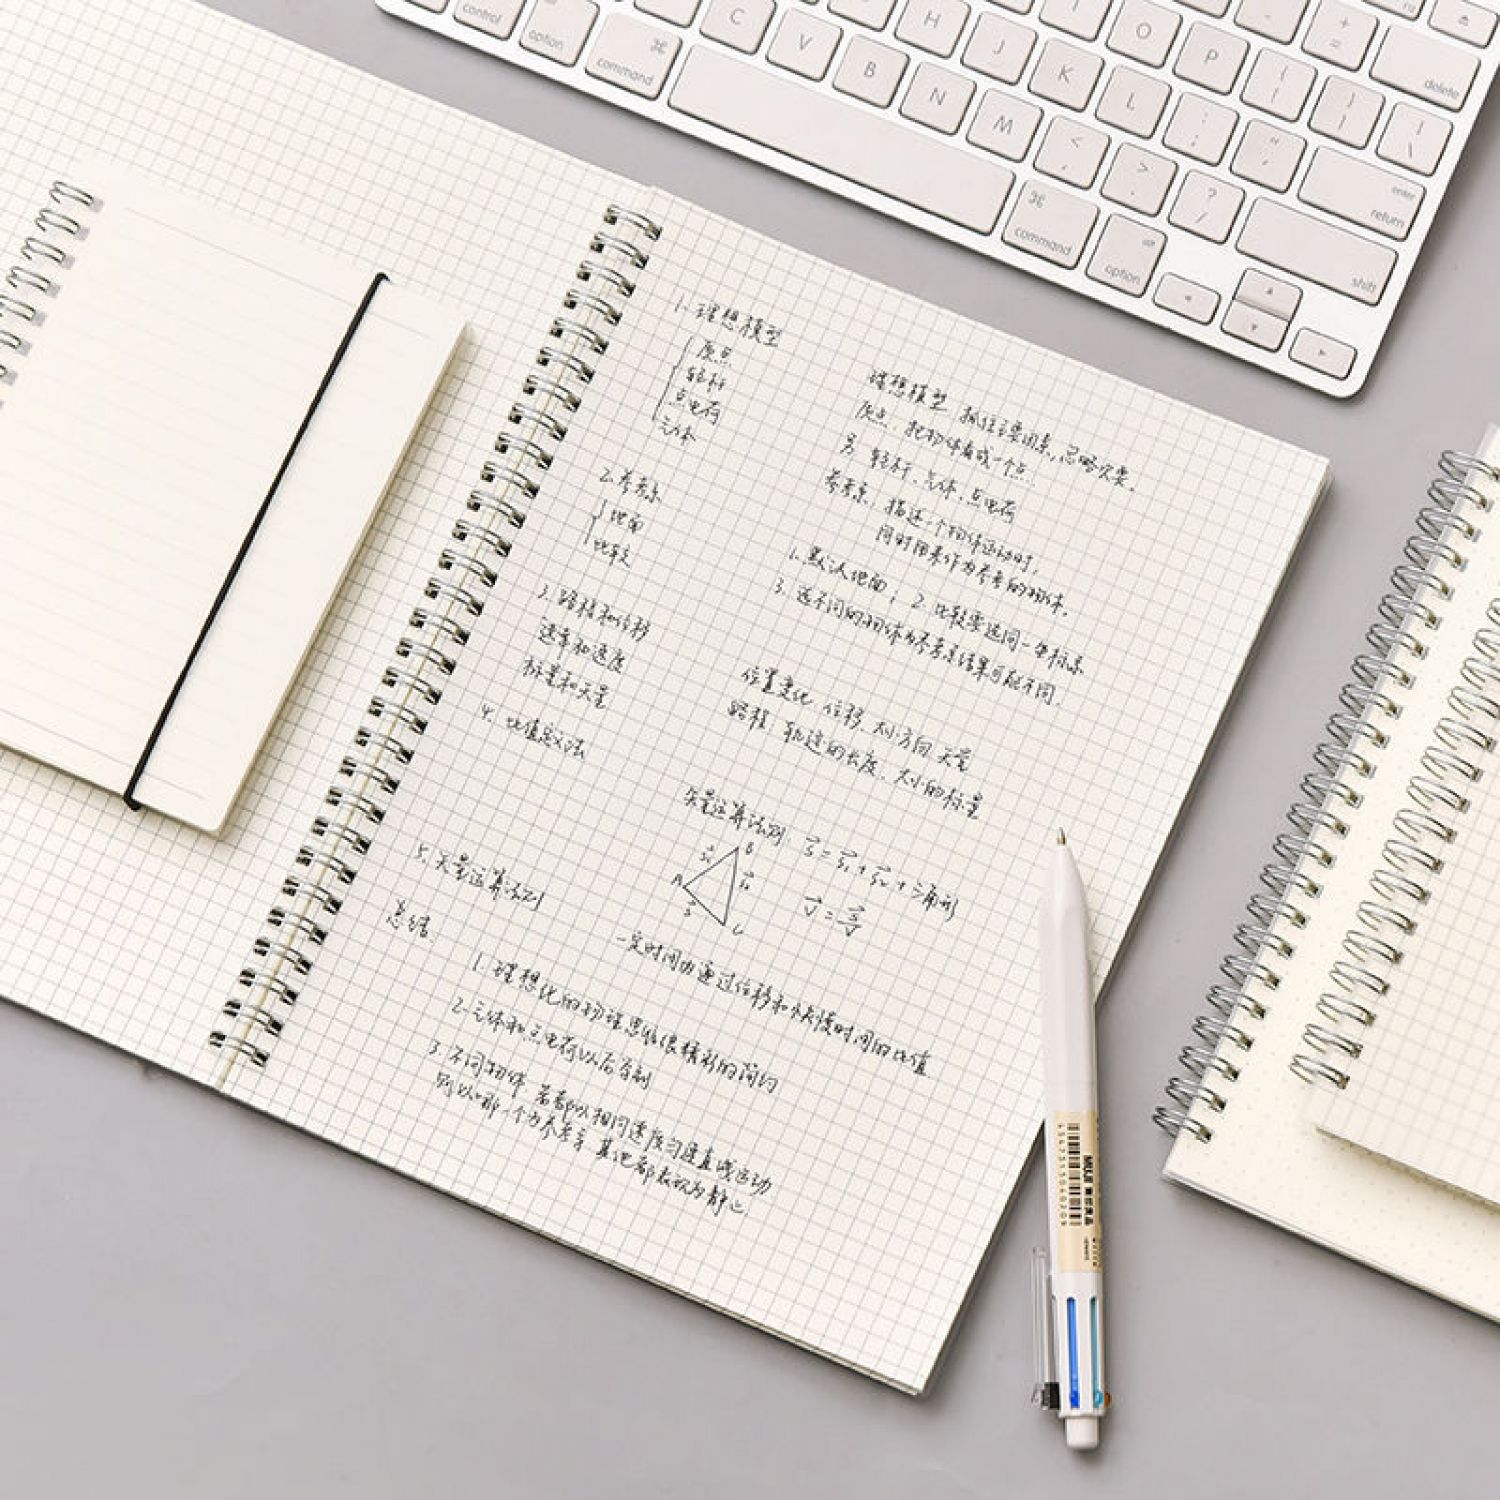 control
option
⌘
command
C
V
B
N
M
<
,
>
.
?
/
H
J
K
L
:
;
"
'
O
P
{
[
}
]
|
\
+
=
delete
enter
return
shift
⌘
command
option
1. 理想模型
质点
轻杆
点电荷
元体
2. 参考系
地面
比较
3. 路程和位移
速率和速度
标量和矢量
4. 比值定义法
5. 矢量运算法则
理想模型 抓住主要因素,忽略次要。
质点:把物体看成一个点
另:轻杆、元体、点电荷
参考系:描述一个物体运动时,
同时用来作为参考的物体。
1. 默认地面;2. 比较要选同一坐标系
3. 选不同的物体为参考系结果可能不同.
位置变化 位移.大小方向 矢量
路程:轨迹的长度.大小的标量
矢量运算法则:
A
B
C
一定时间内通过位移和所用时间的比值
总结
1. 理想化的物理思维很精彩的简约
2. 元体和点电荷以后会制
3. 不同物体 若都以相同速度匀速直线运动
则以哪一个为参考系 其他都表现为静止.
MUJI 無印良品